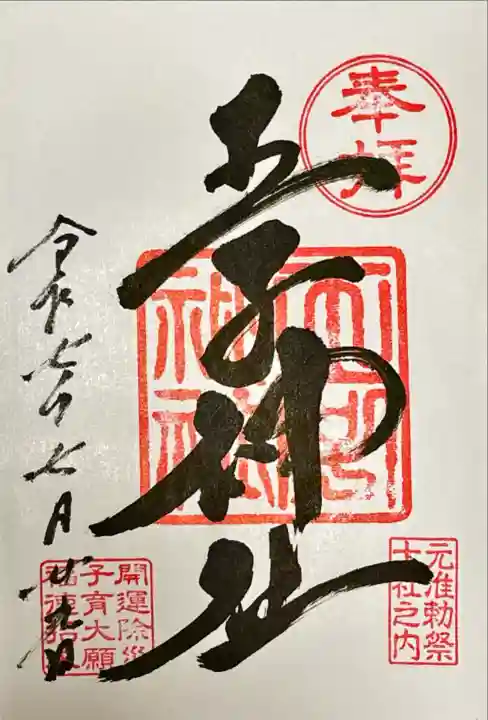 奉拝
王子神社
王子
神社
元准勅祭
十社之内
開運除災
子育大願
福徳招
令和七年七月廿九日